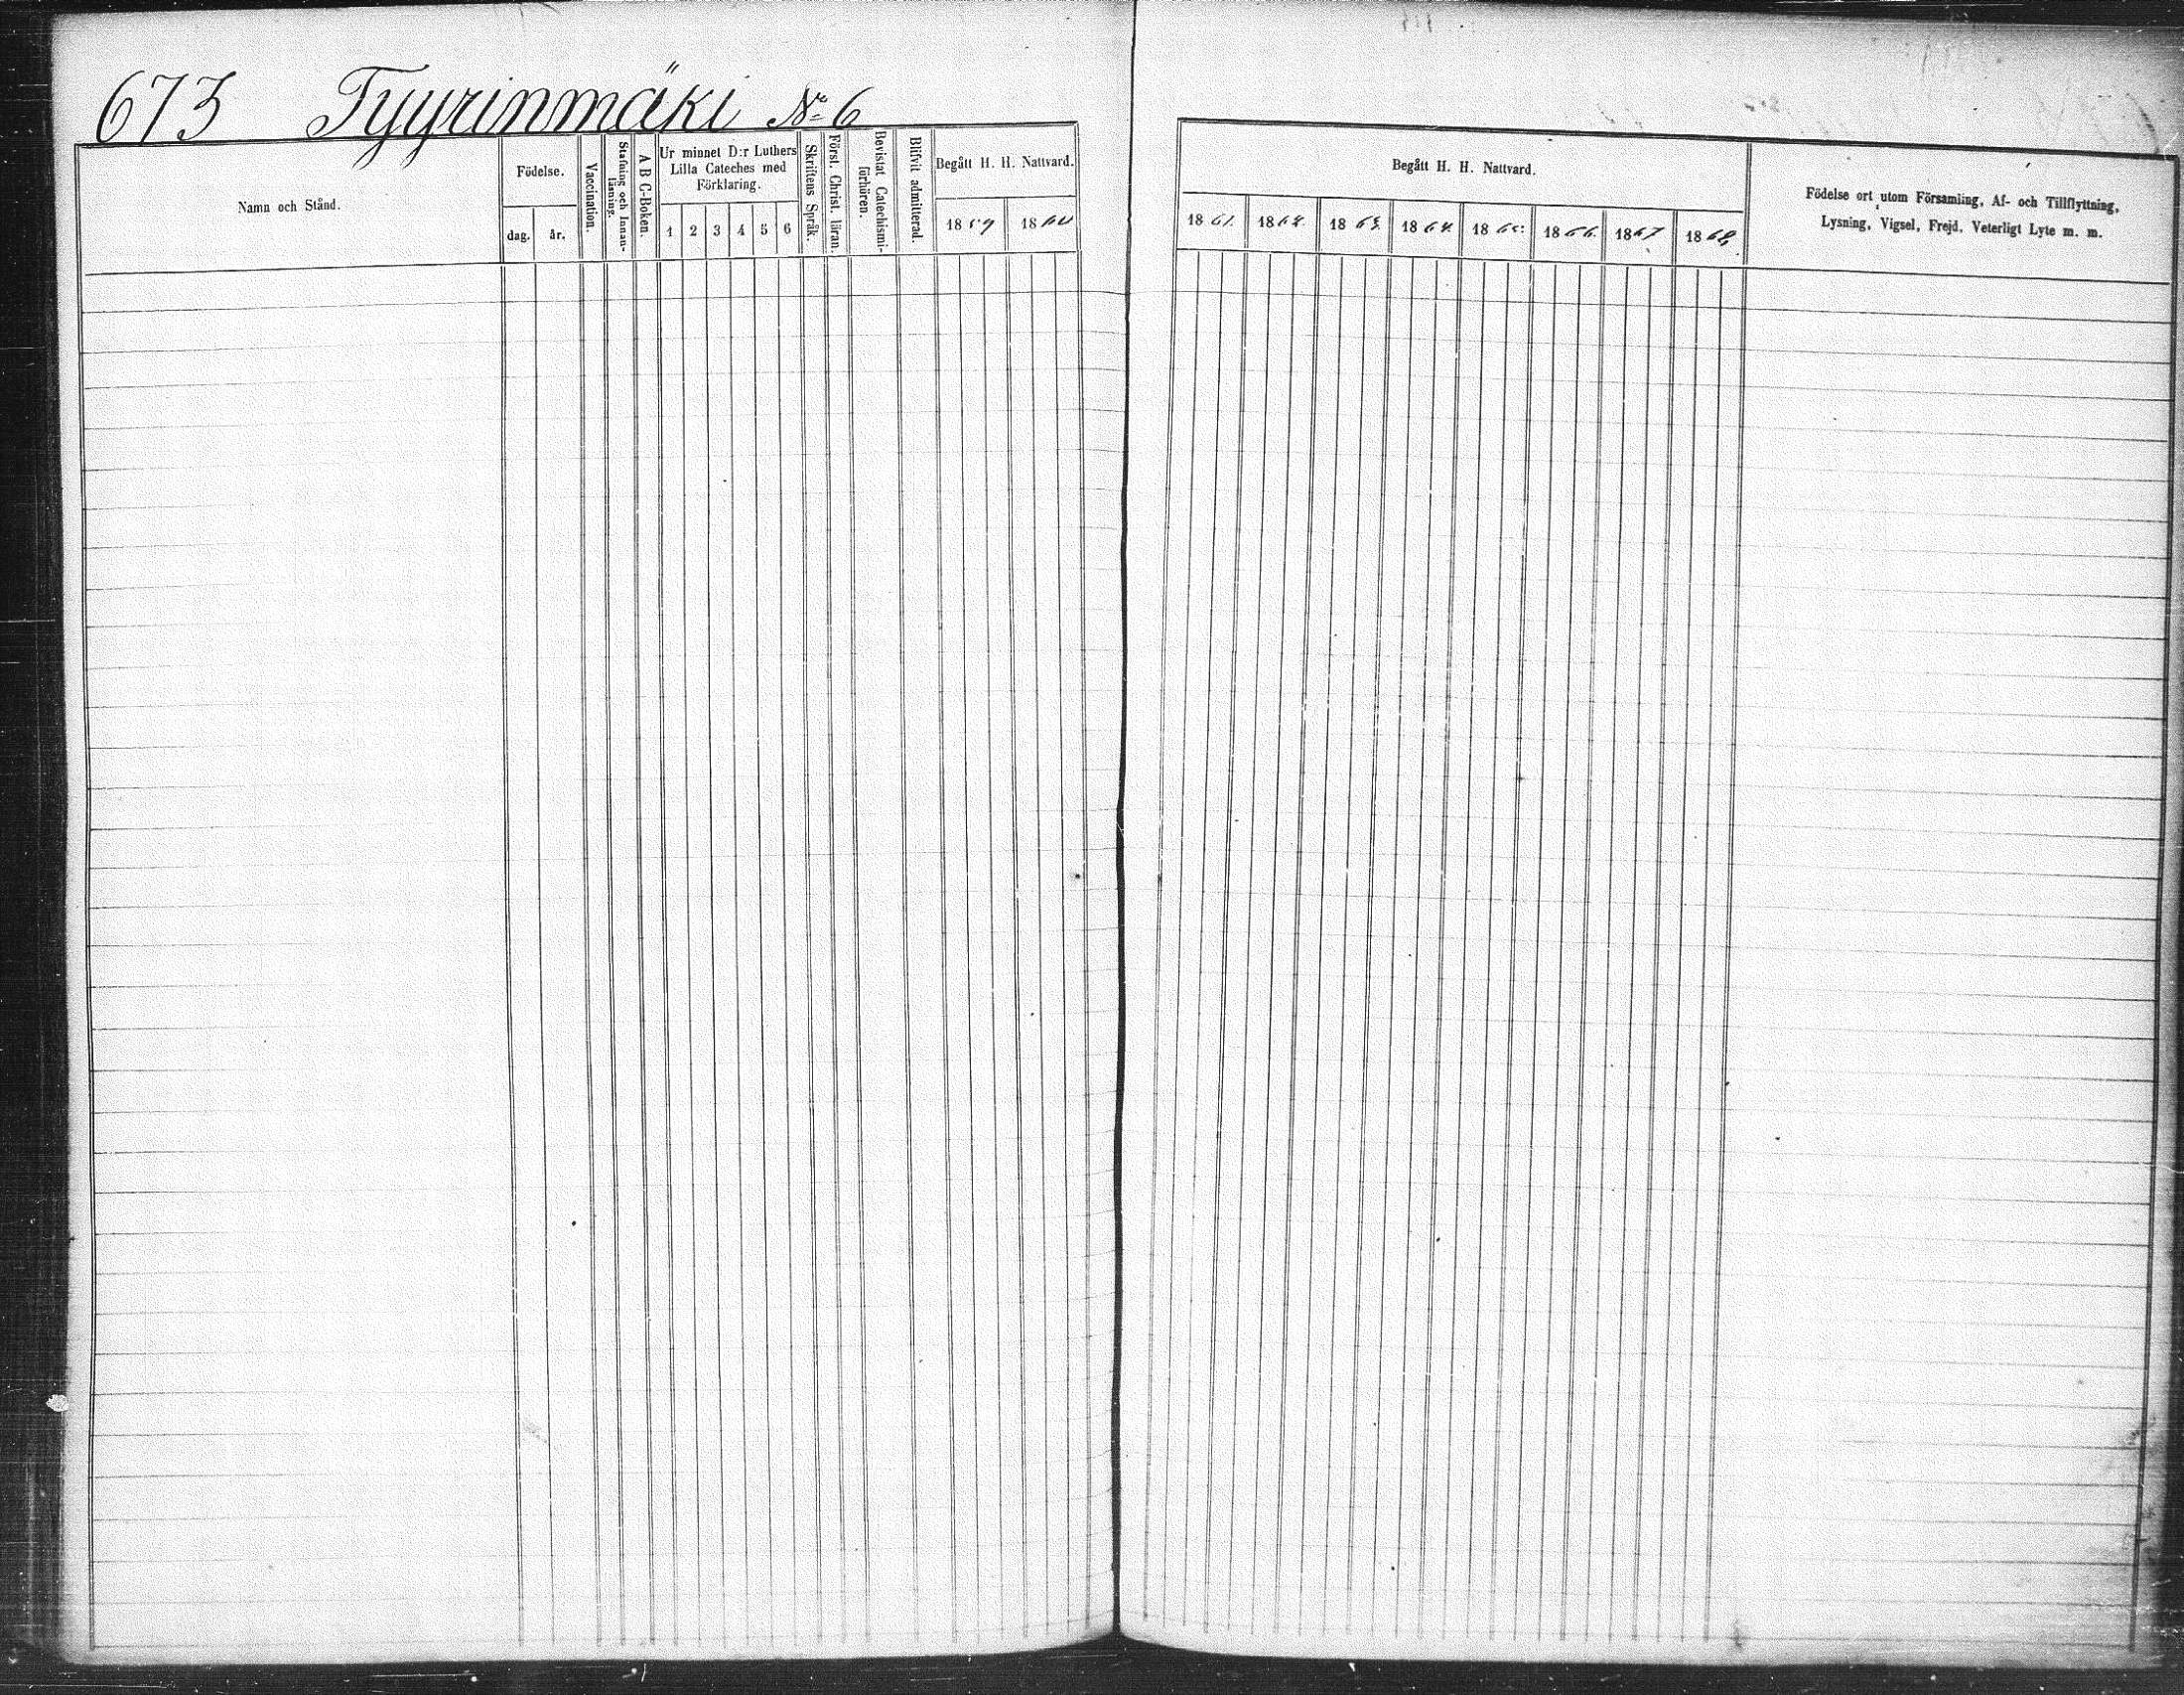 673 Tyyrinmäki No 6
Namn och Stånd.
Födelse.
dag. år.
Vaccination.
Stafning och Innan-
läsning.
A B C-Boken.
Ur minnet D:r Luthers
Lilla Cateches med
Förklaring.
1 2 3 4 5 6
Skriftens Språk.
Först. Christ. läran.
Bevistat Catechismi-
förhören.
Blifvit admitterad.
Begått H. H. Nattvard.
1859 1860
Begått H. H. Nattvard.
1861. 1862. 1863. 1864. 1865. 1866. 1867 1868.
Födelse ort utom Församling, Af- och Tillflyttning,
Lysning, Vigsel, Frejd, Veterligt Lyte m. m.